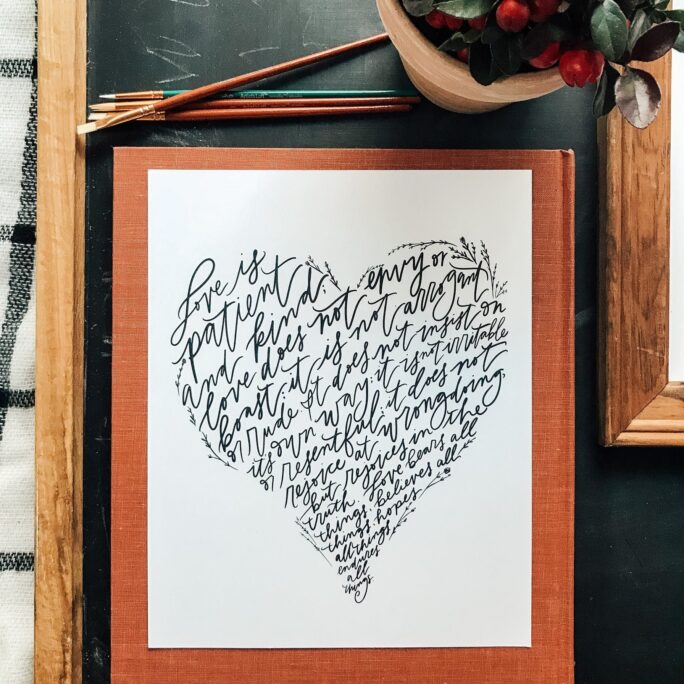 Love is
patient
and kind
love does not envy or
boast it is not arrogant
or rude It does not insist on
its own way it is not irritable
or resentful; it does not
rejoice at wrongdoing
but rejoices in the
truth. Love bears all
things believes all
things hopes
all things
endures
all
things.